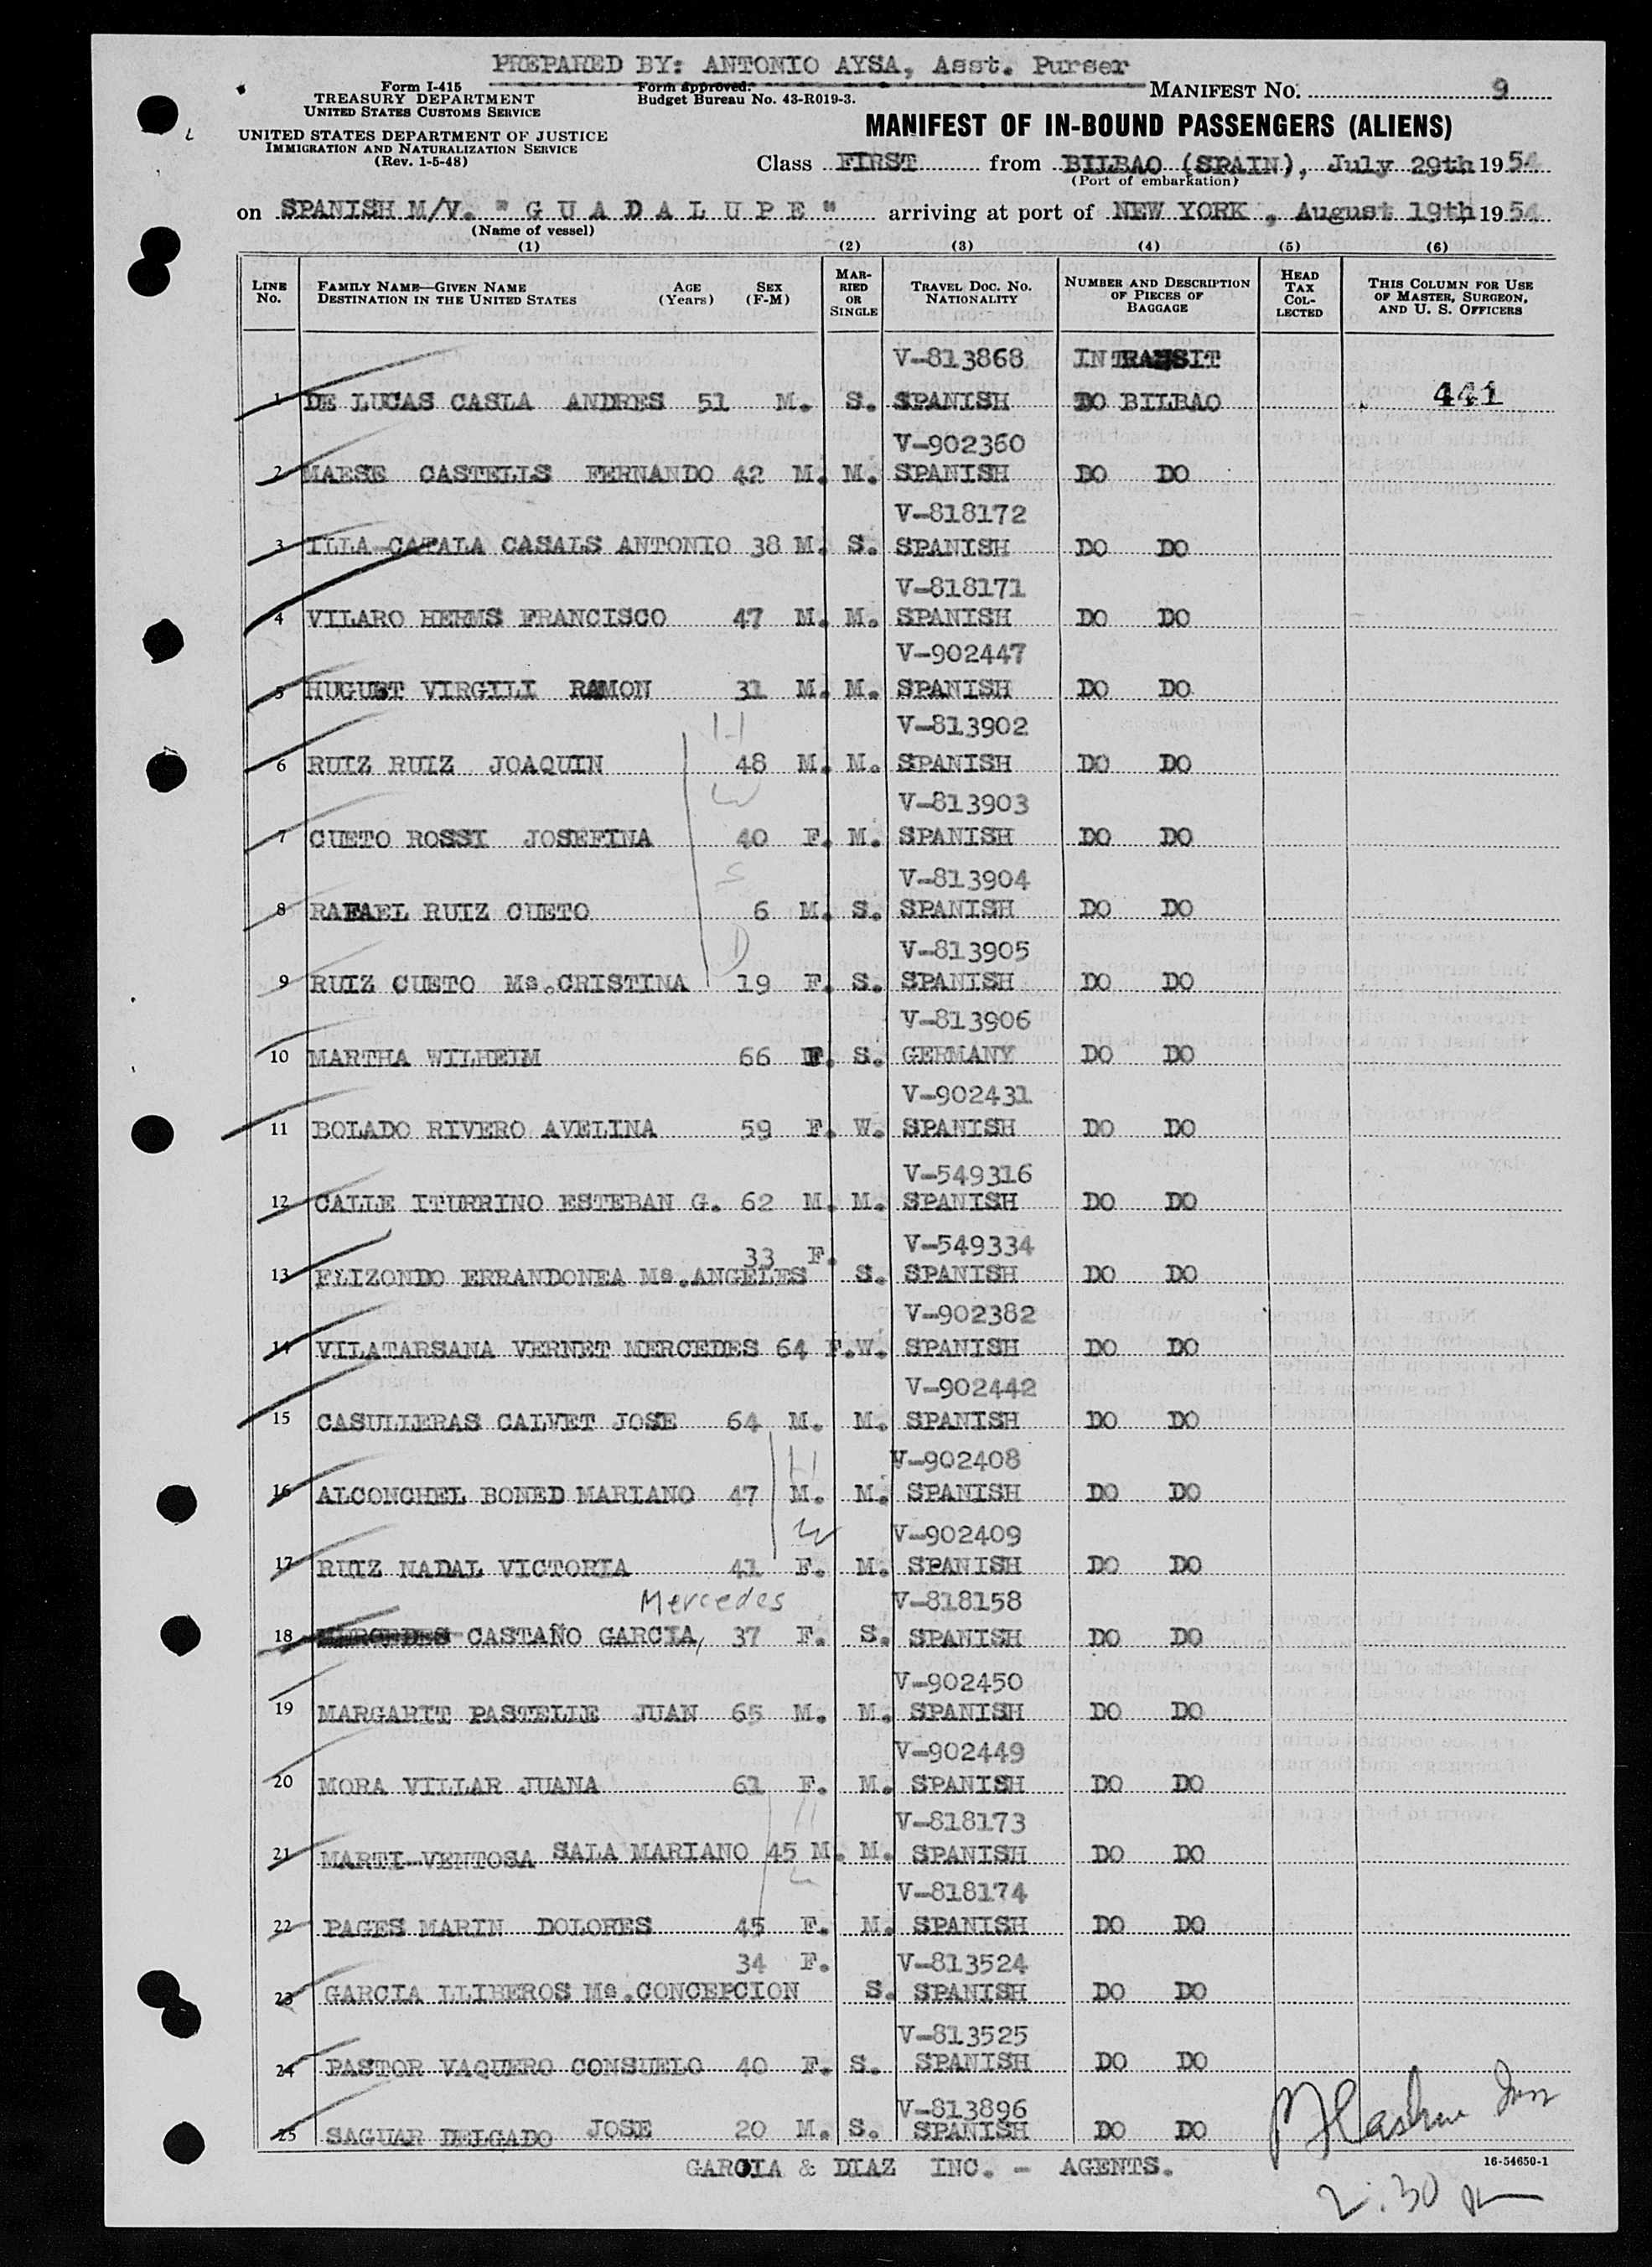 PREPARED BY: ANTONIO AYSA, Asst. Purser
Form I-415
TREASURY DEPARTMENT
UNITED STATES CUSTOMS SERVICE
UNITED STATES DEPARTMENT OF JUSTICE
IMMIGRATION AND NATURALIZATION SERVICE
(Rev. 1-5-48)
Form approved.
Budget Bureau No. 43-R019-3.
MANIFEST NO. 9
MANIFEST OF IN-BOUND PASSENGERS (ALIENS)
Class FIRST from BILBAO (SPAIN), July 29th 1954
(Port of embarkation)
on SPANISH M/V. "GUADALUPE" arriving at port of NEW YORK, August 19th 1954
(Name of vessel)
(1) (2) (3) (4) (5) (6)
LINE No. FAMILY NAME—GIVEN NAME DESTINATION IN THE UNITED STATES AGE (Years) SEX (F-M) MARRIED OR SINGLE TRAVEL DOC. NO. NATIONALITY NUMBER AND DESCRIPTION OF PIECES OF BAGGAGE HEAD TAX COLLECTED THIS COLUMN FOR USE OF MASTER, SURGEON, AND U. S. OFFICERS
V-813868 IN TRANSIT
1 DE LUCAS CASLA ANDRES 51 M. S. SPANISH TO BILBAO 441
V-902360
2 MAESE CASTELLS FERNANDO 42 M. M. SPANISH DO DO
V-818172
3 ILLA-CATALA CASALS ANTONIO 38 M. S. SPANISH DO DO
V-818171
4 VILARO HERMS FRANCISCO 47 M. M. SPANISH DO DO
V-902447
5 HUGUET VIRGILI RAMON 31 M. M. SPANISH DO DO
H V-813902
6 RUIZ RUIZ JOAQUIN 48 M. M. SPANISH DO DO
W V-813903
7 CUETO ROSSI JOSEFINA 40 F. M. SPANISH DO DO
S V-813904
8 RAFAEL RUIZ CUETO 6 M. S. SPANISH DO DO
D V-813905
9 RUIZ CUETO Mª.CRISTINA 19 F. S. SPANISH DO DO
V-813906
10 MARTHA WILHEIM 66 F. S. GERMANY DO DO
V-902431
11 BOLADO RIVERO AVELINA 59 F. W. SPANISH DO DO
V-549316
12 CALLE ITURRINO ESTEBAN G. 62 M. M. SPANISH DO DO
33 F. V-549334
13 ELIZONDO ERRANDONEA Mª.ANGELES S. SPANISH DO DO
V-902382
14 VILATARSANA VERNET MERCEDES 64 F.W. SPANISH DO DO
V-902442
15 CASULLERAS CALVET JOSE 64 M. M. SPANISH DO DO
H V-902408
16 ALCONCHEL BONED MARIANO 47 M. M. SPANISH DO DO
W V-902409
17 RUIZ NADAL VICTORIA 41 F. M. SPANISH DO DO
Mercedes V-818158
18 MERCEDES CASTAÑO GARCIA, 37 F. S. SPANISH DO DO
V-902450
19 MARGARIT PASTELLE JUAN 65 M. M. SPANISH DO DO
V-902449
20 MORA VILLAR JUANA 61 F. M. SPANISH DO DO
H V-818173
21 MARTI-VENTOSA SALA MARIANO 45 M. M. SPANISH DO DO
W V-818174
22 PAGES MARIN DOLORES 45 F. M. SPANISH DO DO
34 F. V-813524
23 GARCIA LLIBEROS Mª.CONCEPCION S. SPANISH DO DO
V-813525
24 PASTOR VAQUERO CONSUELO 40 F. S. SPANISH DO DO
V-813896
25 SAGUAR DELGADO JOSE 20 M. S. SPANISH DO DO
GARCIA & DIAZ INC. - AGENTS.
16-54650-1
2:30